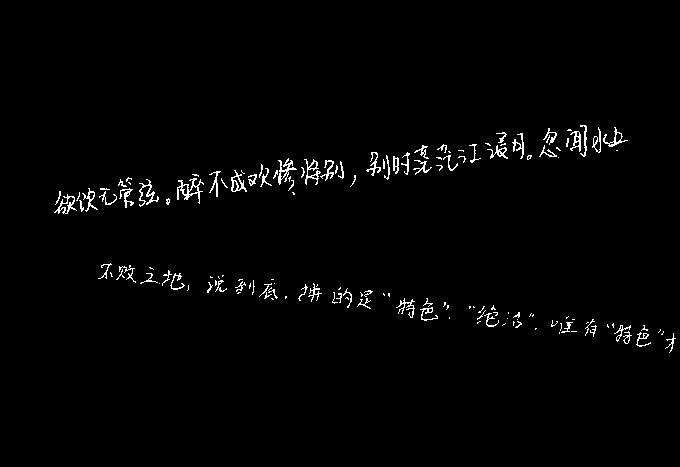 欲饮无管弦。醉不成欢惨将别，别时茫茫江浸月。忽闻水上
不败之地，说到底，拼的是“特色”、“绝活”，唯有“特色”才